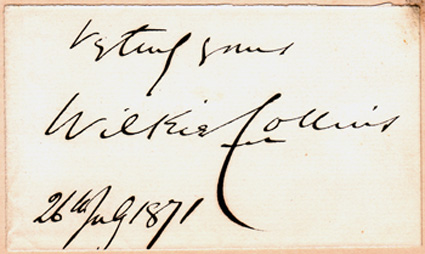 Vy truly yours
Wilkie Collins
26th July 1871